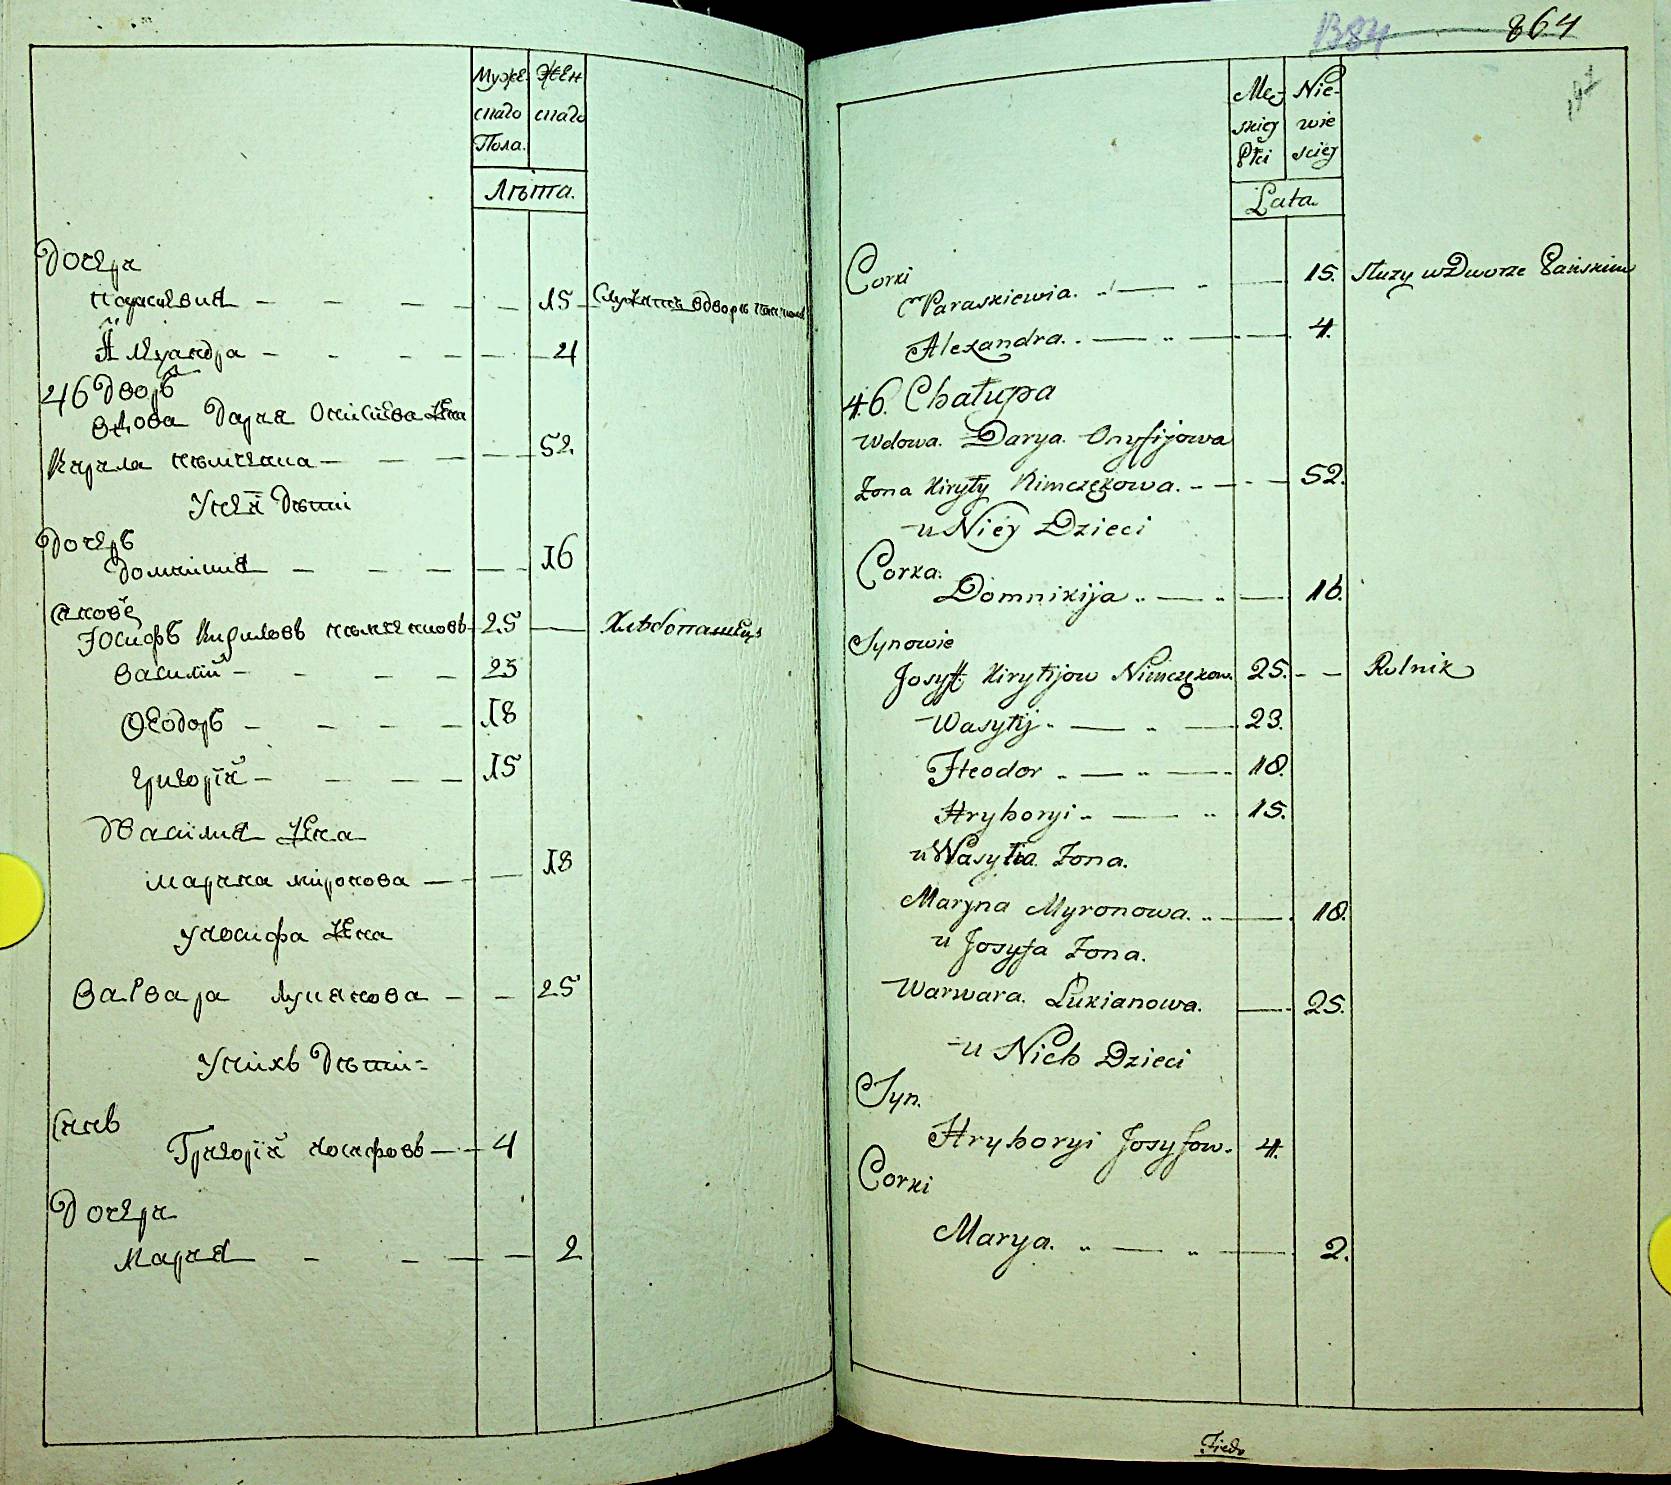 Муже Жен
скаго скаго
Пола.
Лѣта.
Дочери
Параскевия 15 Служитъ вдворѣ панскомъ
Александра 4
46 Дворъ
вдова Дария Онисиева жена
Кирила нѣмчкина 52.
Унея Дѣти
Дочерь
Домникия 16
Синове
Юсифъ Кириловъ 25 Хлѣбопашецъ
василий 23
Феодоръ 18
григорий 15
Увасилия жена
марина миронова 18
уиосифа жена
Варвара лукянова 25
Унихъ Дѣти
Синъ
Григорий иосифовъ 4
Дочери
мария 2
1384 864
Mę- Nie-
skiej wie
Płci sciej
Lata.
Corki
Paraskiewia. 15. służy wDworze Pańskim
Alexandra. 4.
46. Chałupa
Wdowa. Darya. Onyfijowa
Zona Kiryły Nimczękowa. 52.
u Niej Dzieci
Corka.
Domnikija 16.
Synowie
Josyff Kiryłijow Nimczękow. 25. Rolnik
Wasylij 23.
Fteodor 18.
Hryhoryi 15.
u Wasyla Zona.
Maryna Myronowa. 18.
u Josyfa Zona.
Warwara. Łukianowa. 25.
u Nich Dzieci
Syn.
Hryhoryi Josyfow. 4.
Corki
Marya. 2.